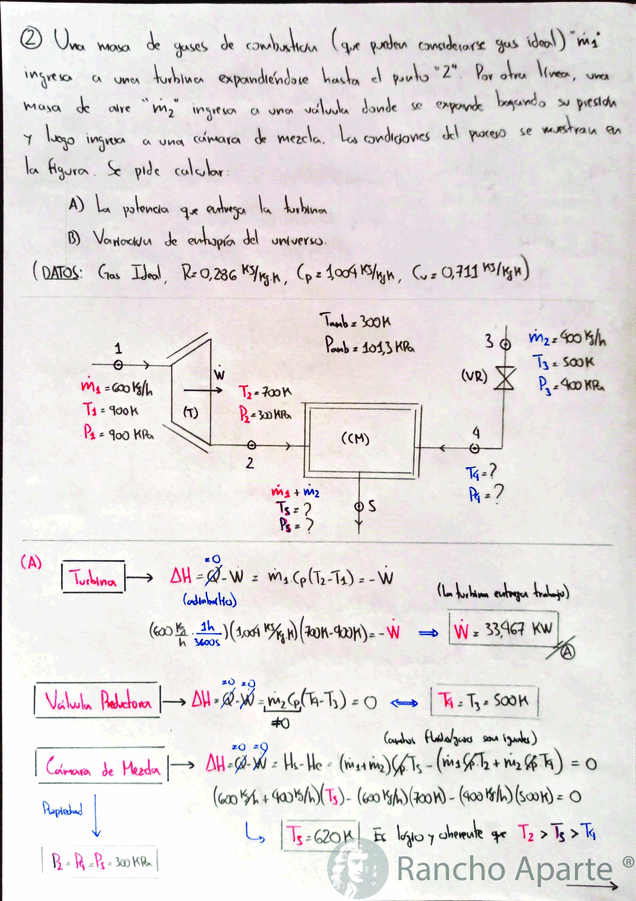 ② Una masa de gases de combustión (que pueden considerarse gas ideal) "ṁ1"
ingresa a una turbina expandiéndose hasta el punto "2". Por otra línea, una
masa de aire "ṁ2" ingresa a una válvula donde se expande bajando su presión
y luego ingresa a una cámara de mezcla. Las condiciones del proceso se muestran en
la figura. Se pide calcular:
A) La potencia que entrega la turbina
B) Variación de entropía del universo.
(DATOS: Gas Ideal, R=0,286 KJ/kg.K, Cp=1,004 KJ/kg.K, Cv=0,711 KJ/kg.K)
Tamb=300K
Pamb=101,3 KPa
1
ṁ1=600Kg/h
T1=900K
P1=900 KPa
(T)
Ẇ
T2=700K
P2=300KPa
2
(CM)
3
ṁ2=400Kg/h
T3=500K
P3=400KPa
(VR)
4
T4=?
P4=?
ṁ1+ṁ2
T5=?
P5=?
5
(A)
Turbina → ΔH = Q̇ - Ẇ = ṁ1 Cp(T2-T1) = -Ẇ
=0
(adiabático)
(La turbina entrega trabajo)
(600 Kg/h · 1h/3600s)(1,004 KJ/kg K)(700K-900K) = -Ẇ ⇒ Ẇ = 33,467 KW
A
Válvula Reductora → ΔH = Q̇ - Ẇ = ṁ2 Cp(T4-T3) = 0 ⟺ T4 = T3 = 500K
=0 =0
≠0
(ambos fluidos/gases son iguales)
Cámara de Mezcla → ΔH = Q̇ - Ẇ = Hs - He = (ṁ1+ṁ2)Cp T5 - (ṁ1 Cp T2 + ṁ2 Cp T4) = 0
=0 =0
(600 Kg/h + 400 Kg/h)(T5) - (600 Kg/h)(700K) - (400 Kg/h)(500K) = 0
Propiedad
T5 = 620K Es lógico y coherente que T2 > T5 > T4
P2 = P4 = P5 = 300 KPa
Rancho Aparte ®